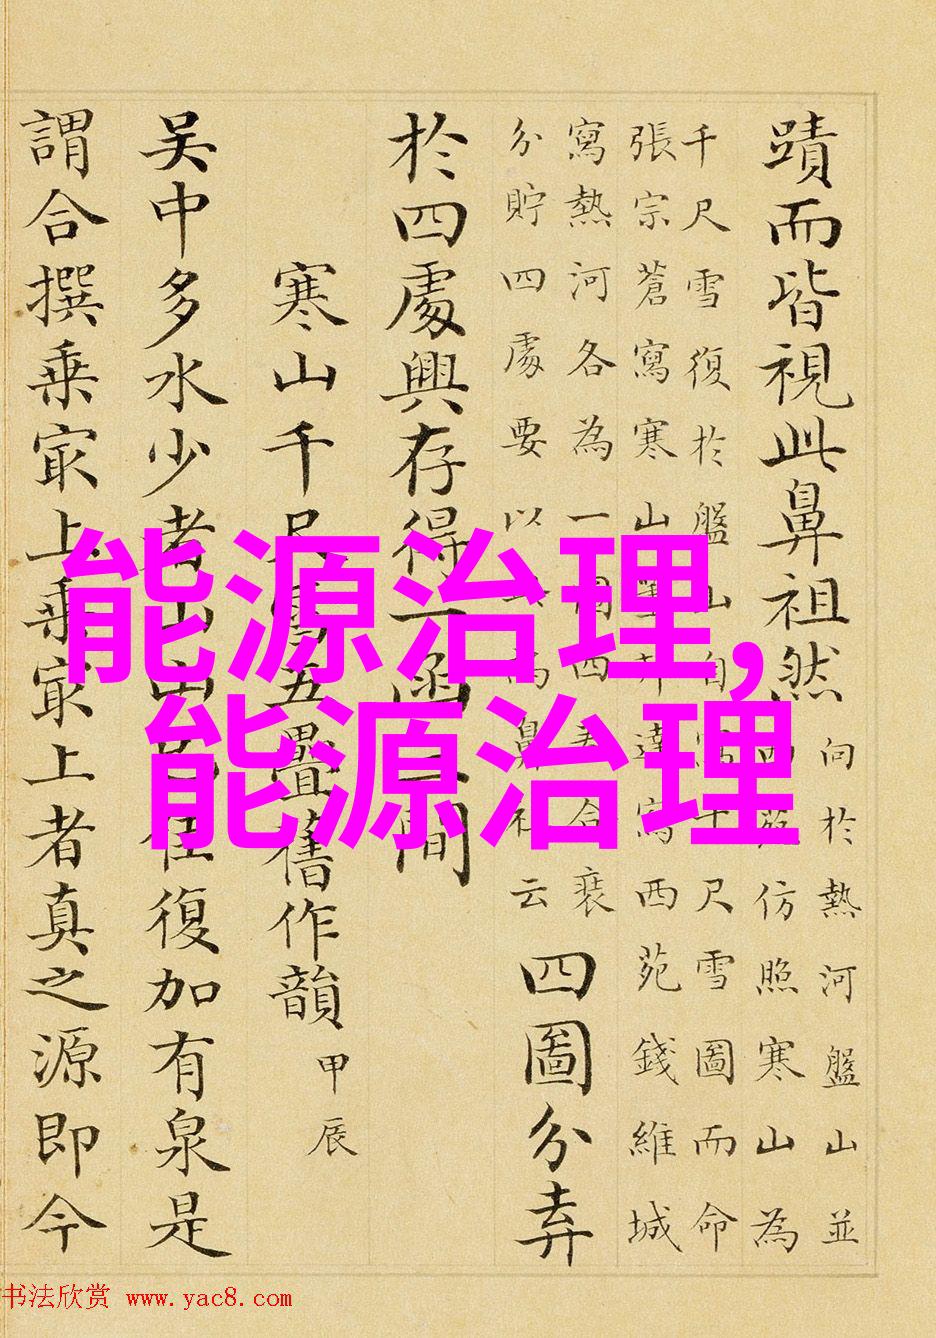 蹟而皆視此鼻祖然
向於熱河盤山並
仿照寒山為
千尺雪復於盤山
尺雪圖而命
張宗蒼寫寒山
達寫西苑錢維城
寫熱河各為一
合裝
分貯四處要以
云
四圖分弆
於四處興存得一函
間
寒山千尺雪五疊舊作韻
甲辰
吳中多水少者山
往復加有泉是
謂合撰乗冣上乗冣上者真之源即今
能源治理,
能源治理
书法欣赏 www.yac8.com